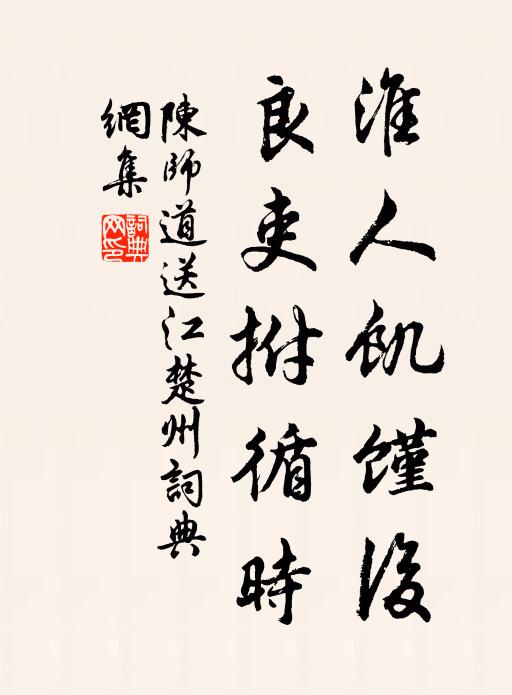 淮人飢饉後
良吏拊循時
陳師道送江楚州詞典
網集
詞典
网印